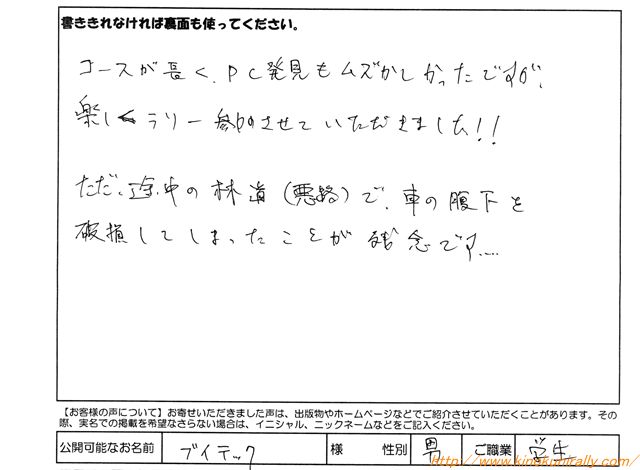 書ききれなければ裏面も使ってください。
コースが長く、PC発見もムズかしかったですが、
楽しくラリー参加させていただきました!!
ただ、途中の林道(悪路)で、車の腹下を
破損してしまったことが残念です.....
【お客様の声について】お寄せいただきました声は、出版物やホームページなどでご紹介させていただくことがあります。その
際、実名での掲載を希望なさらない場合は、イニシャル、ニックネームなどをご記入ください。
公開可能なお名前 ブイテック 様 性別 男 ご職業 学生